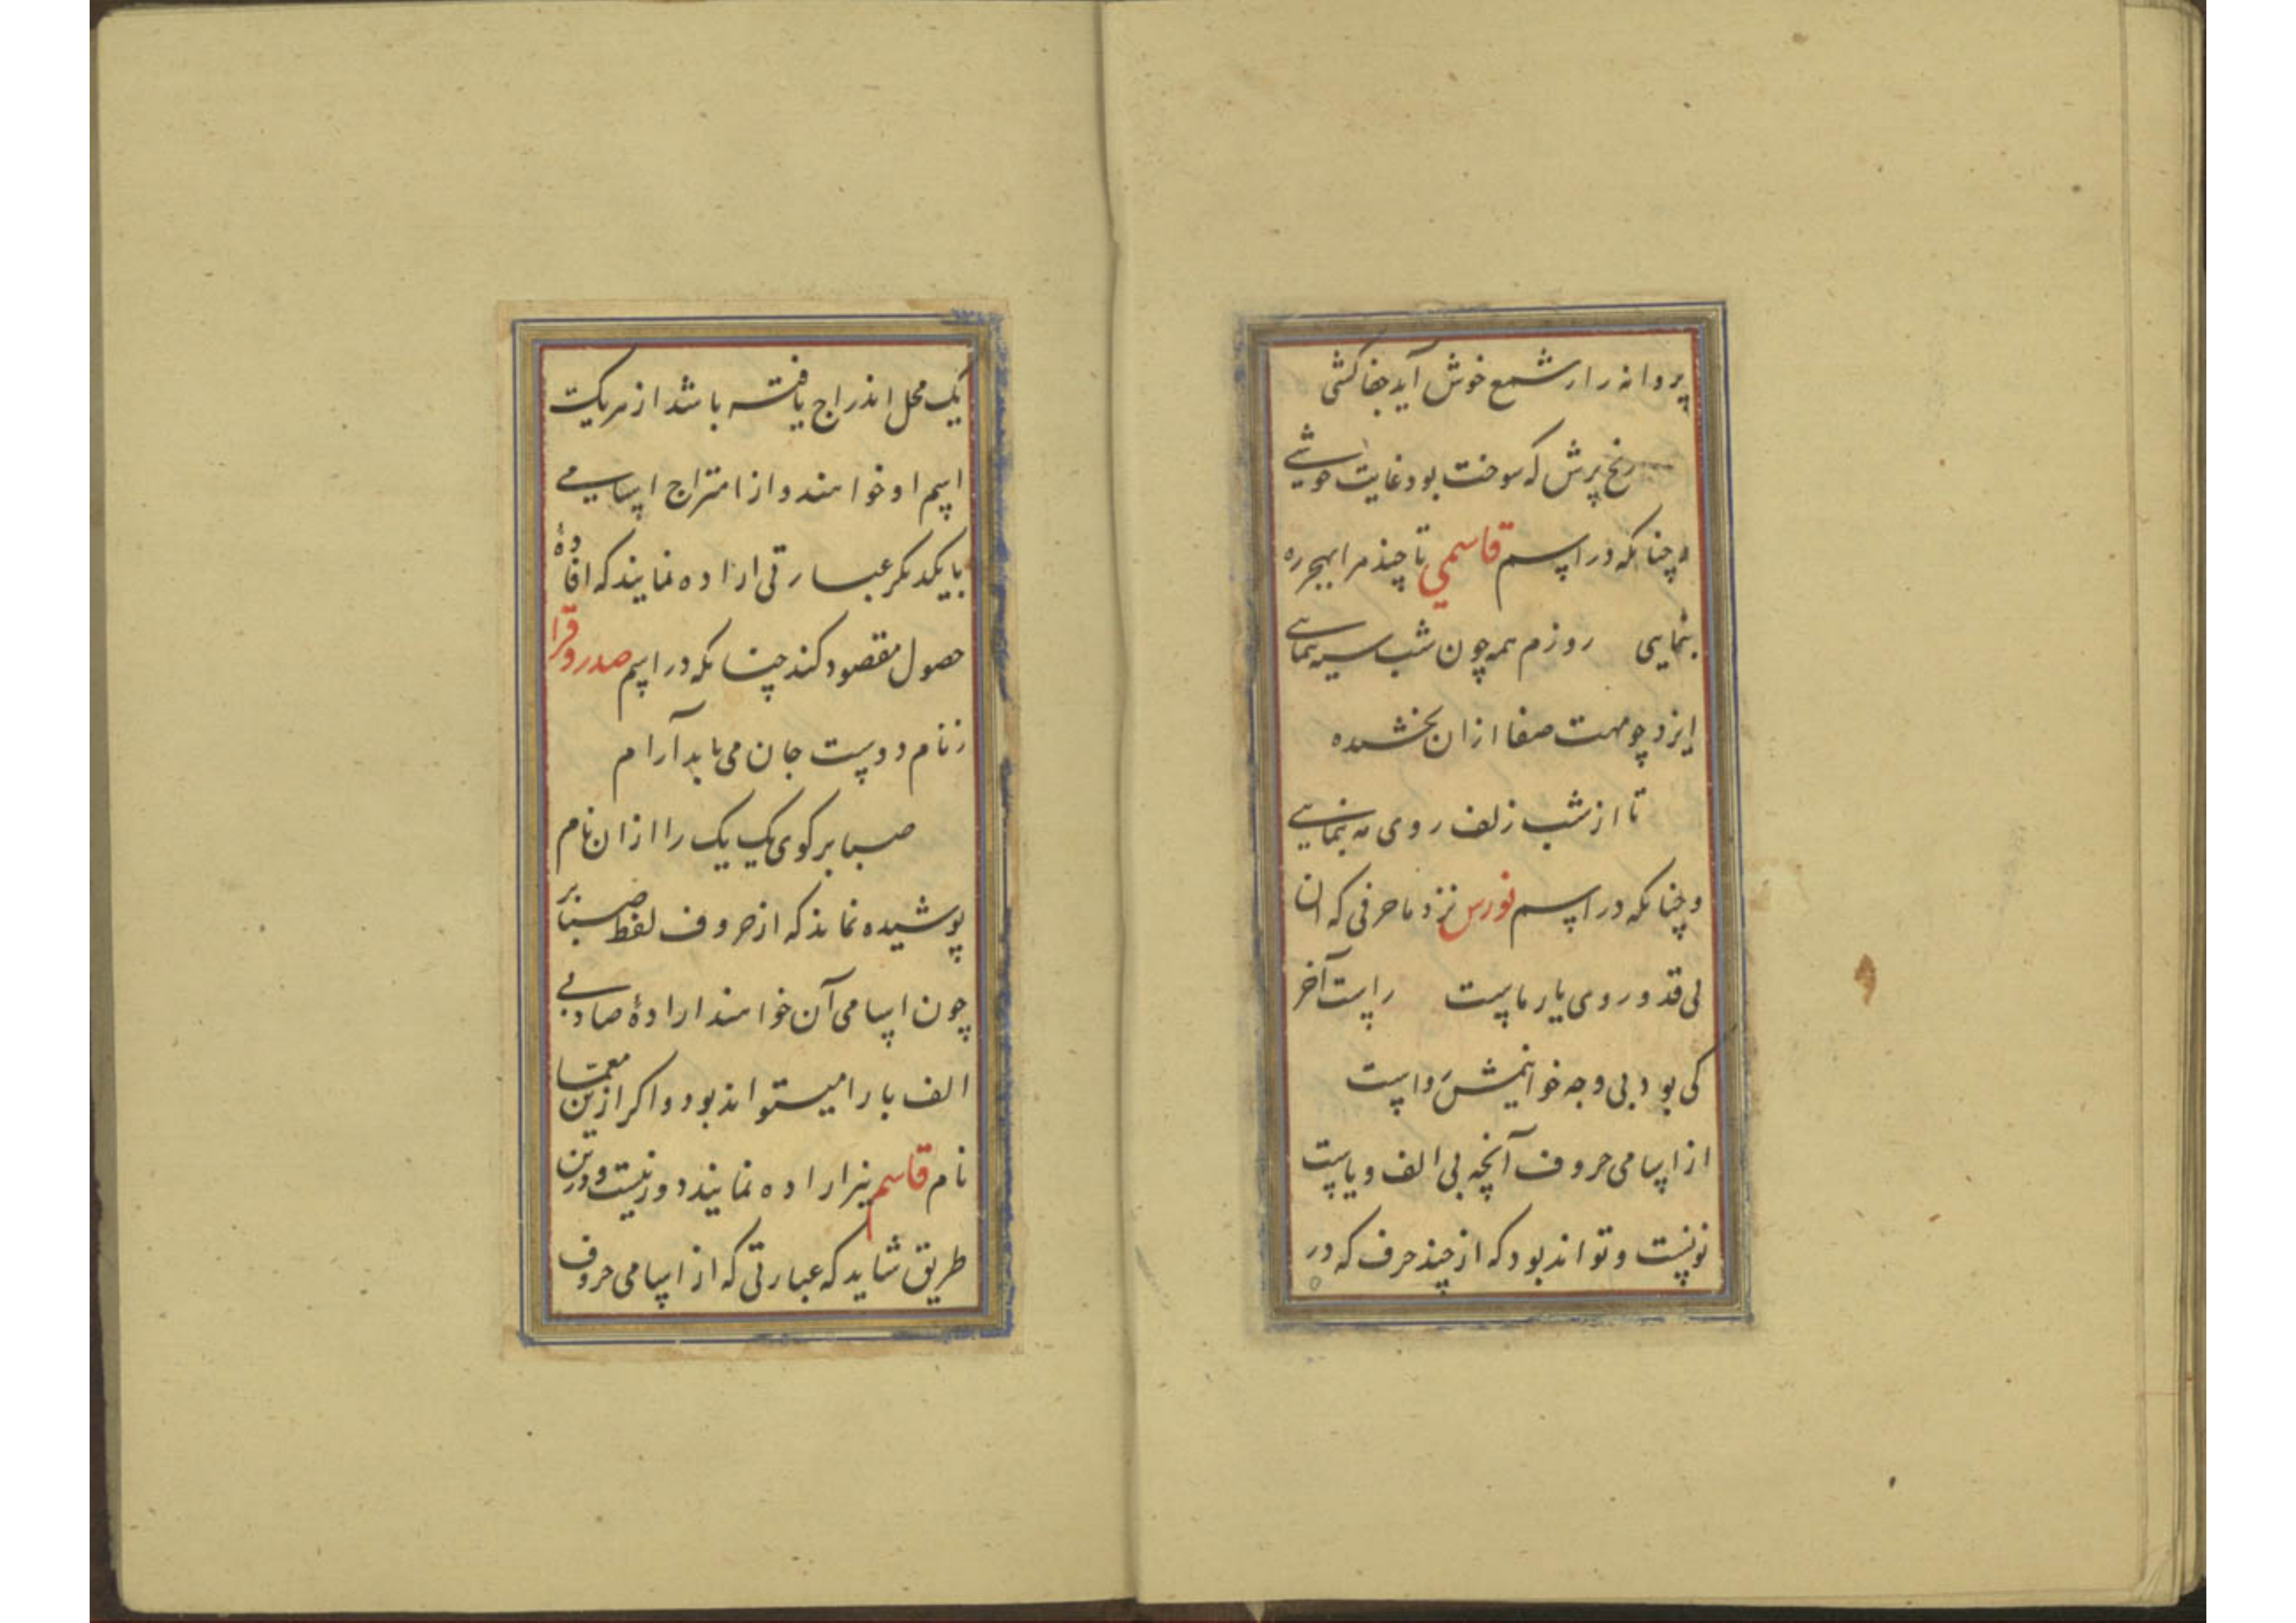 پروانه را از شمع خوش آید جفاکشی
رنج پرش که سوخت بود غایت خوشی
و چنانکه در اسم قاسمی تا چند مرا بهجر ره
بنمایی روزم همه چون شب سیه بنمایی
ایزد چو مهت صفا ازان بخشیده
تا از شب زلف روی مه بنمایی
و چنانکه در اسم نورس نزد ما حرفی که ان
بی قد و روی یار ماست راست آخر
کی بود بی وجه خوانیمش رواست
از اسامی حروف آنچه بی الف و یاست
نونست و تواند بود که از چند حرف که در
یک محل اندراج یافته باشد از هریک
اسم او خواهند و از امتزاج اسامی
بایکدیکر عبارتی اراده نمایند که افادهٔ
حصول مقصود کند چنانکه در اسم صدر و قرا
ز نام دوست جان می یابد آرام
صبا بر کوی یک یک را ازان نام
پوشیده نماند که از حروف لفظ صبا بر
چون اسامی آن خواهند ارادهٔ صاد بی
الف با را میتواند بود و اکر ازین معما
نام قاسم نیز اراده نمایند دور نیست و درین
طریق شاید که عبارتی که از اسامی حروف